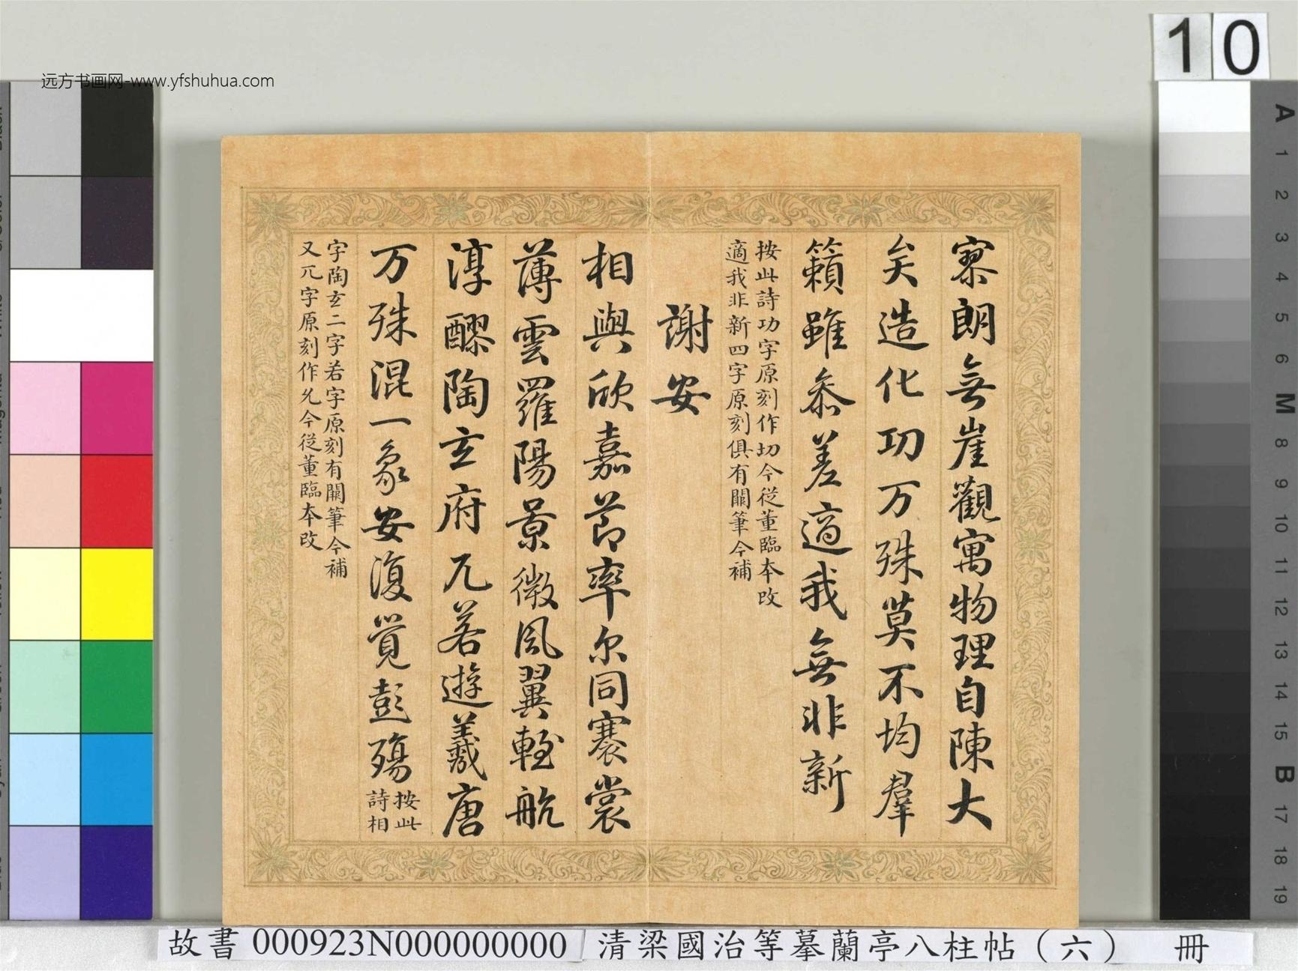 远方书画网-www.yfshuhua.com
10
寥朗無崖觀寓物理自陳大
矣造化功万殊莫不均羣
籟雖叅差適我無非新
按此詩功字原刻作切今從董臨本改
適我非新四字原刻俱有闕筆今補
謝安
相與欣嘉節率尔同褰裳
薄雲羅陽景微風翼輕航
淳醪陶玄府兀若遊羲唐
万殊混一象安復覺彭殤
按此
詩相
字陶玄二字若字原刻有闕筆今補
又兀字原刻作允今從董臨本改
A
1
2
3
4
5
6
M
8
9
10
11
12
13
14
15
B
17
18
19
故書 000923N000000000 清梁國治等摹蘭亭八柱帖（六） 冊